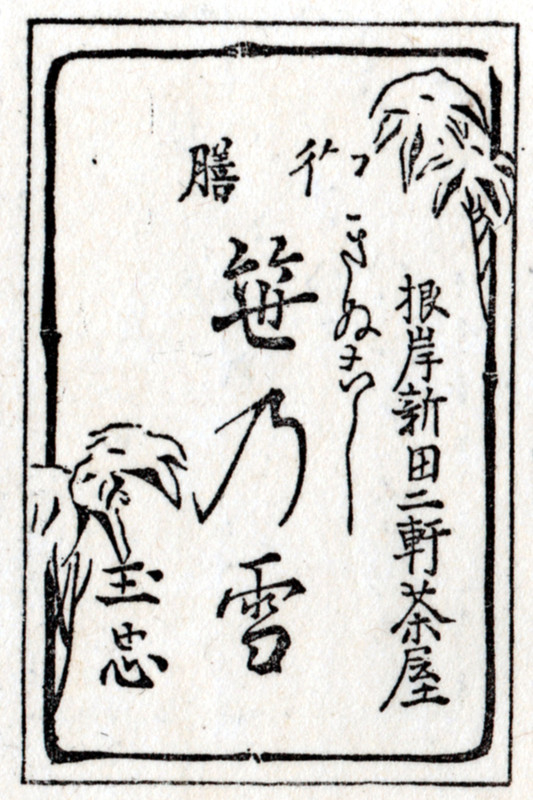 根岸新田二軒茶屋
御膳
きぬごし
笹乃雪
玉忠